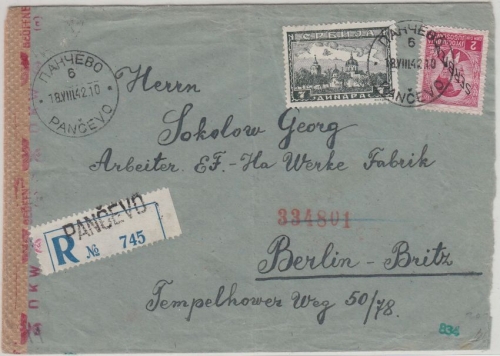 ПАНЧЕВО
6
18.VIII.42.10
PANČEVO
СРБИЈА
7 ДИНАРА 7
ПАНЧЕВО
6
18.VIII.42.10
PANČEVO
2
Herrn
Sokolow Georg
Arbeiter EF.-Ha Werke Fabrik
334801
PANČEVO
R № 745
Berlin-Britz
Tempelhower Weg 50/78.
836